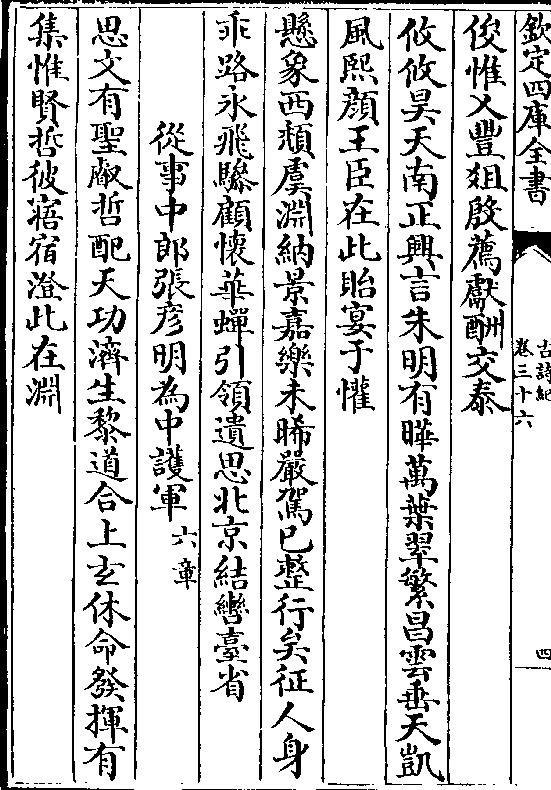 欽定四庫全書
古詩紀
卷三十六
四
俊惟乂豐俎殷薦獻酬交泰
攸攸昊天南正興言朱明有曄萬葉翠繁昌雲垂天凱
風熙顔王臣在此貽宴于懽
懸象西頽虞淵納景嘉樂未晞嚴駕已整行矣征人身
乖路永飛驂顧懷華蟬引領遺思北京結轡臺省
從事中郎張彦明為中護軍六章
思文有聖叡哲配天功濟生黎道合上玄休命發揮有
集惟賢哲彼寤宿澄此在淵